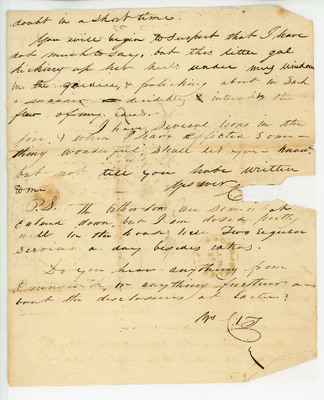 doubt in a short time.
You will begin to suspect that I have
not much to say, but this little gal
kicking up her heels under my window
in the garden, & frolicking about in such
a manner decidedly interrupts the
flow of my ideas.
I have several irons in the
fire, & when I have effected some-
thing wonderful shall let you know,
but not till you have written
to me
Yrs ever
P.S. The
down, but I am dosed pretty
well in the hands here Two regular
services a day besides extras.
Do you hear anything from
or anything further a-
bout the disclosures at
Yrs